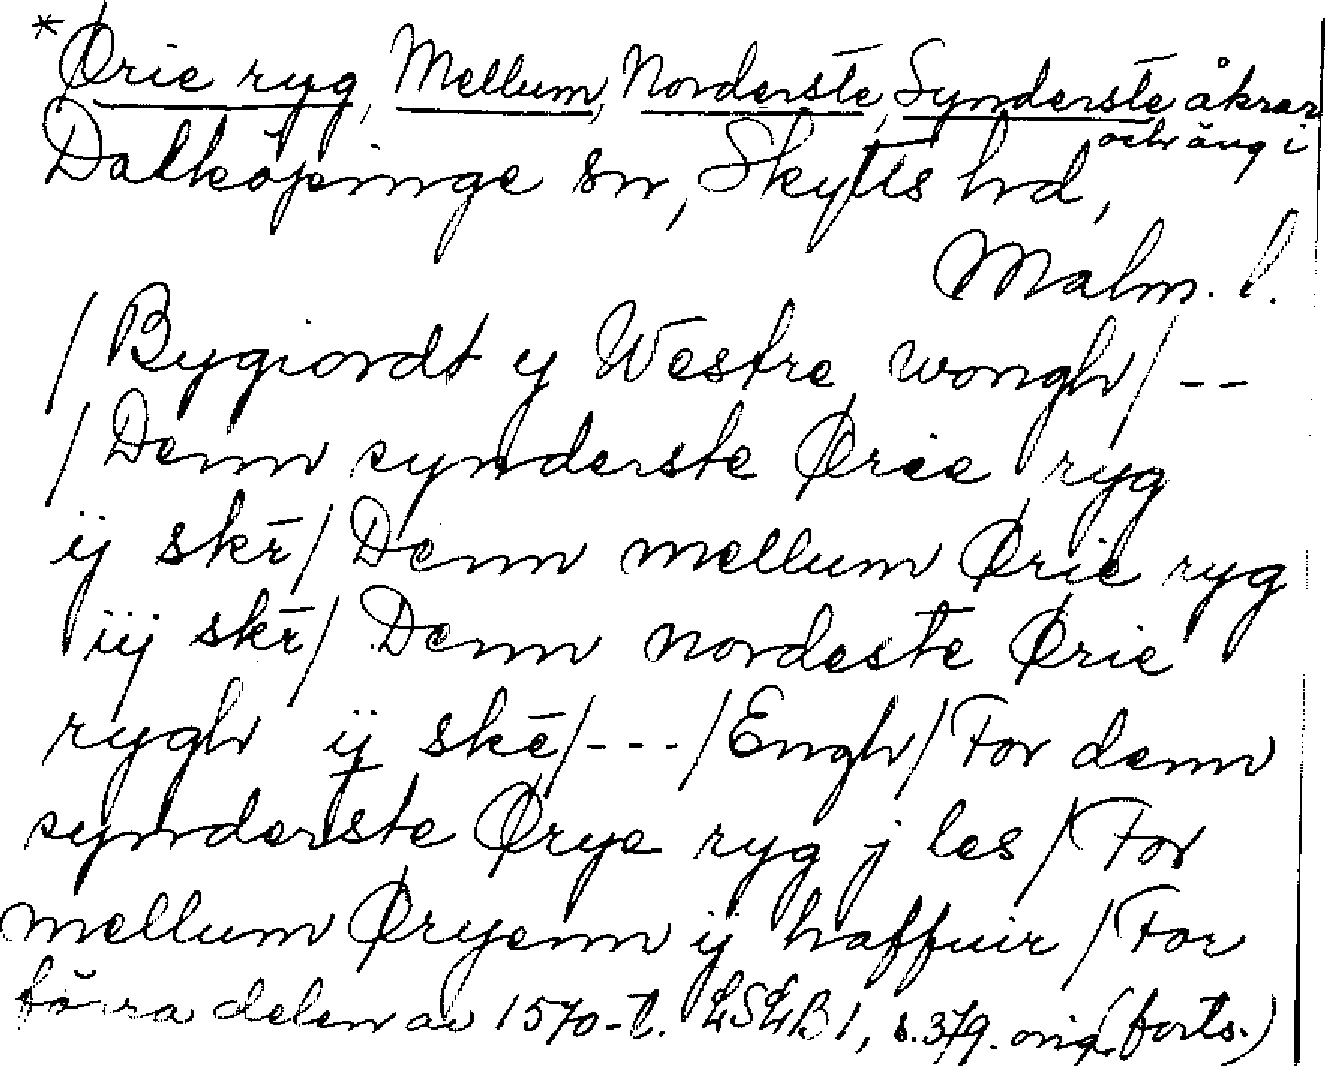 *Ørie ryg, Mellum, Norderste, Synderste åkrar
och äng i
Dalköpinge sn, Skytts hd,
Malm. l.
/Bygiordt y Westre wongh/ --
/Denn synderste Ørie ryg
ij skr̄/ Denn mellum Ørie ryg
iij skr̄/ Denn nordeste Ørie
rygh ij skē/---/Engh/For denn
synderste Ørye ryg j les/For
mellum Øryenn ij haffuir/For
förra delen av 1570-t. LSLB 1, s. 379. orig (forts.)